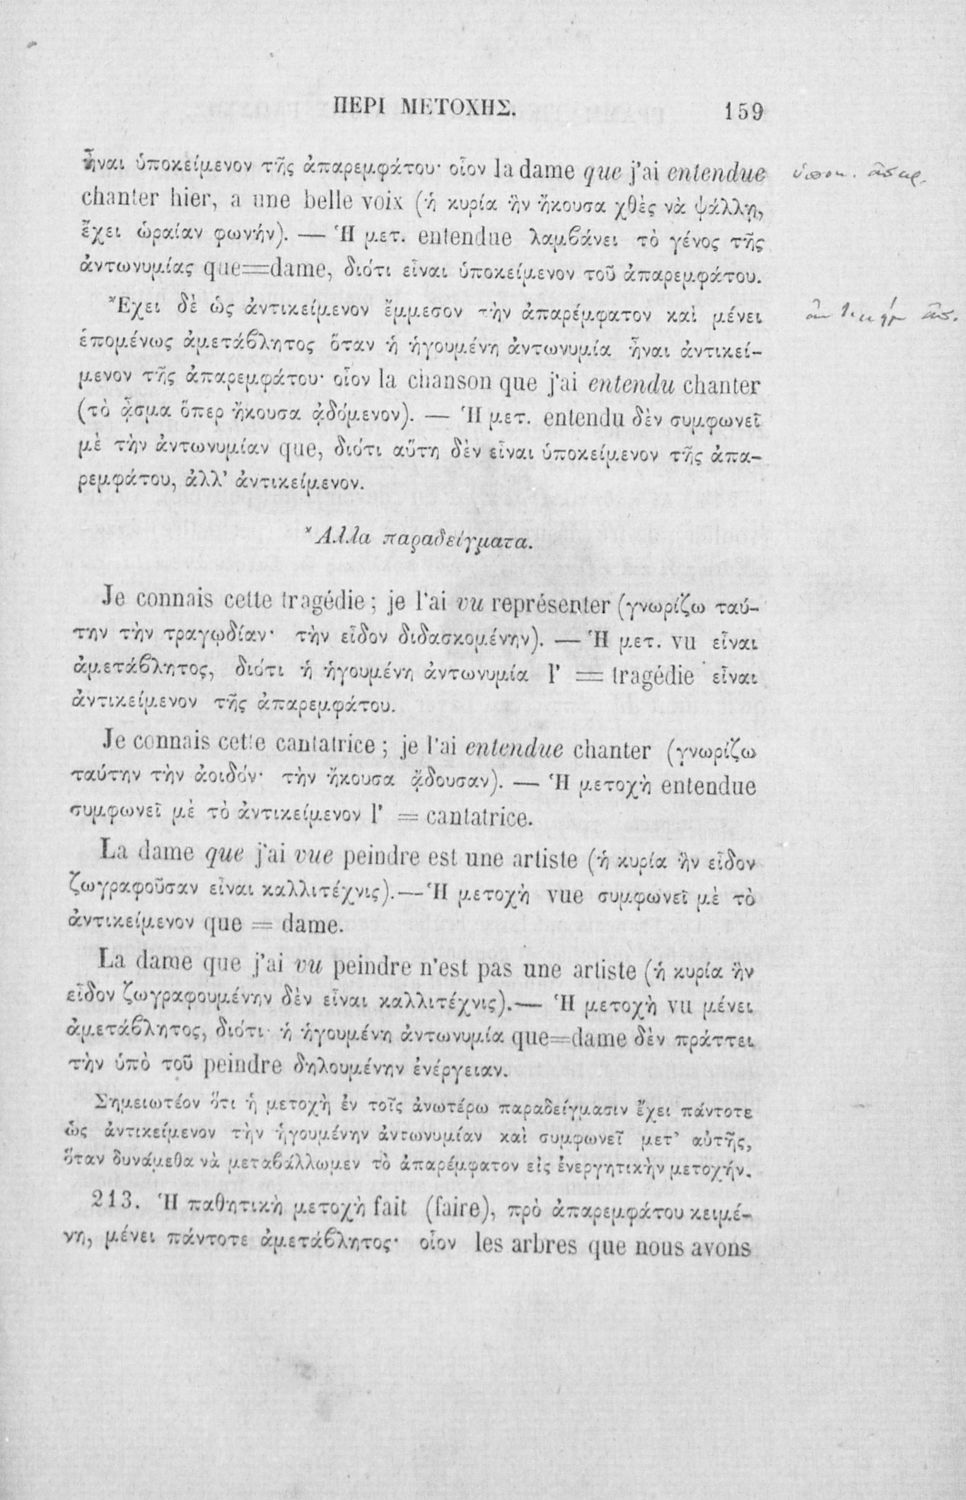 ΠΕΡΙ ΜΕΤΟΧΗΣ. 159
ἦναι ὑποκείμενον τῆς ἀπαρεμφάτου· οἷον la dame que j'ai entendue
chanter hier, a une belle voix (ἡ κυρία ἣν ἤκουσα χθὲς νὰ ψάλλῃ,
ἔχει ὡραίαν φωνήν). — Ἡ μετ. entendue λαμβάνει τὸ γένος τῆς
ἀντωνυμίας que=dame, διότι εἶναι ὑποκείμενον τοῦ ἀπαρεμφάτου.
Ἔχει δὲ ὡς ἀντικείμενον ἔμμεσον τὴν ἀπαρέμφατον καὶ μένει
ἑπομένως ἀμετάβλητος ὅταν ἡ ἡγουμένη ἀντωνυμία ἦναι ἀντικεί-
μενον τῆς ἀπαρεμφάτου· οἷον la chanson que j'ai entendu chanter
(τὸ ᾆσμα ὅπερ ἤκουσα ᾀδόμενον). — Ἡ μετ. entendu δὲν συμφωνεῖ
μὲ τὴν ἀντωνυμίαν que, διότι αὕτη δὲν εἶναι ὑποκείμενον τῆς ἀπα-
ρεμφάτου, ἀλλ' ἀντικείμενον.
Ἄλλα παραδείγματα.
Je connais cette tragédie ; je l'ai vu représenter (γνωρίζω ταύ-
την τὴν τραγῳδίαν· τὴν εἶδον διδασκομένην). — Ἡ μετ. vu εἶναι
ἀμετάβλητος, διότι ἡ ἡγουμένη ἀντωνυμία l' = tragédie εἶναι
ἀντικείμενον τῆς ἀπαρεμφάτου.
Je connais cette cantatrice ; je l'ai entendue chanter (γνωρίζω
ταύτην τὴν ἀοιδόν· τὴν ἤκουσα ᾄδουσαν). — Ἡ μετοχὴ entendue
συμφωνεῖ μὲ τὸ ἀντικείμενον l' = cantatrice.
La dame que j'ai vue peindre est une artiste (ἡ κυρία ἣν εἶδον
ζωγραφοῦσαν εἶναι καλλιτέχνις).—Ἡ μετοχὴ vue συμφωνεῖ μὲ τὸ
ἀντικείμενον que = dame.
La dame que j'ai vu peindre n'est pas une artiste (ἡ κυρία ἣν
εἶδον ζωγραφουμένην δὲν εἶναι καλλιτέχνις).— Ἡ μετοχὴ vu μένει
ἀμετάβλητος, διότι ἡ ἡγουμένη ἀντωνυμία que=dame δὲν πράττει
τὴν ὑπὸ τοῦ peindre δηλουμένην ἐνέργειαν.
Σημειωτέον ὅτι ἡ μετοχὴ ἐν τοῖς ἀνωτέρω παραδείγμασιν ἔχει πάντοτε
ὡς ἀντικείμενον τὴν ἡγουμένην ἀντωνυμίαν καὶ συμφωνεῖ μετ' αὐτῆς,
ὅταν δυνάμεθα νὰ μεταβάλλωμεν τὸ ἀπαρέμφατον εἰς ἐνεργητικὴν μετοχήν.
213. Ἡ παθητικὴ μετοχὴ fait (faire), πρὸ ἀπαρεμφάτου κειμέ-
νη, μένει πάντοτε ἀμετάβλητος· οἷον les arbres que nous avons